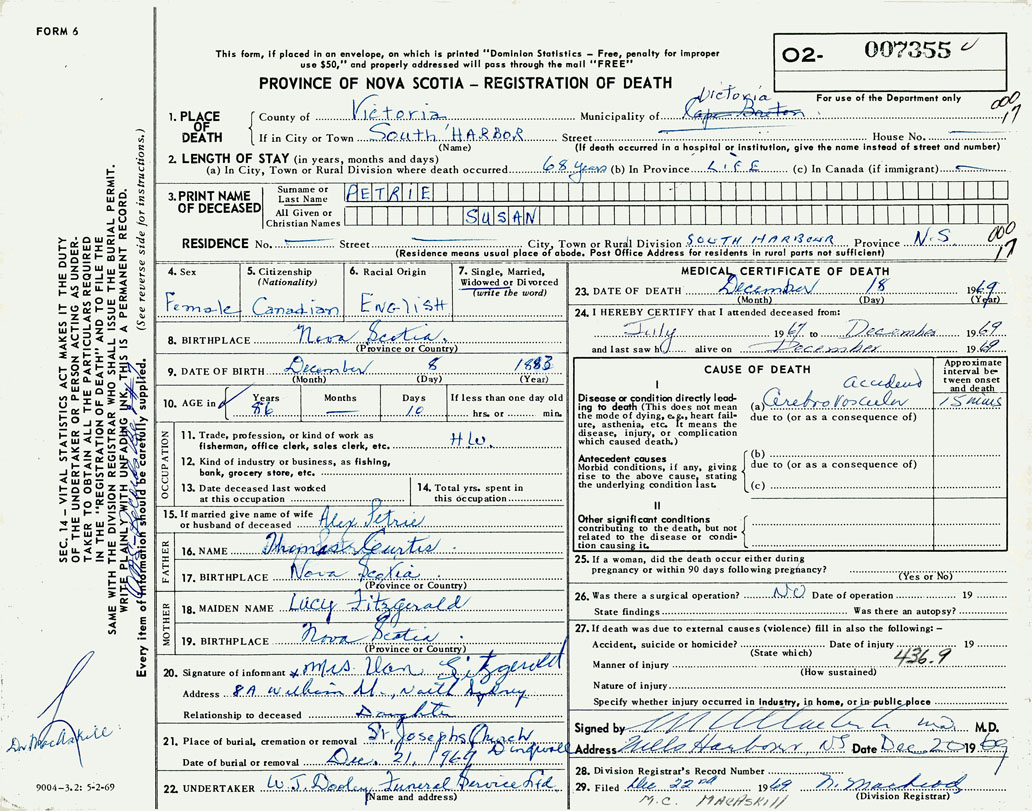 FORM 6
This form, if placed in an envelope, on which is printed "Dominion Statistics – Free, penalty for improper
use $50," and properly addressed will pass through the mail "FREE"
02- 007355
PROVINCE OF NOVA SCOTIA – REGISTRATION OF DEATH
For use of the Department only
1. PLACE OF DEATH
County of Victoria Municipality of Cape Breton Victoria
000 17
If in City or Town South HARBOR Street House No.
(Name) (If death occurred in a hospital or institution, give the name instead of street and number)
2. LENGTH OF STAY (in years, months and days)
(a) In City, Town or Rural Division where death occurred 68 years (b) In Province LIFE (c) In Canada (if immigrant) —
3. PRINT NAME OF DECEASED
Surname or Last Name PETRIE
All Given or Christian Names SUSAN
RESIDENCE No. — Street — City, Town or Rural Division SOUTH HARBOUR Province N.S. 000 17
(Residence means usual place of abode. Post Office Address for residents in rural parts not sufficient)
4. Sex
Female
5. Citizenship
(Nationality)
Canadian
6. Racial Origin
ENGLISH
7. Single, Married,
Widowed or Divorced
(write the word)
8. BIRTHPLACE Nova Scotia.
(Province or Country)
9. DATE OF BIRTH December 8 1883
(Month) (Day) (Year)
10. AGE in Years 86 Months — Days 10 If less than one day old
hrs. or min.
OCCUPATION
11. Trade, profession, or kind of work as
fisherman, office clerk, sales clerk, etc. H.W.
12. Kind of industry or business, as fishing,
bank, grocery store, etc.
13. Date deceased last worked
at this occupation
14. Total yrs. spent in
this occupation
15. If married give name of wife
or husband of deceased Alex Petrie
FATHER
16. NAME Thomas Curtis
17. BIRTHPLACE Nova Scotia
(Province or Country)
MOTHER
18. MAIDEN NAME Lucy Fitzgerald
19. BIRTHPLACE Nova Scotia
(Province or Country)
20. Signature of informant Mrs. Fitzgerald
Address 8A William St., North Sydney
Relationship to deceased Daughter
21. Place of burial, cremation or removal St. Josephs Church Dingwall
Date of burial or removal Dec. 21, 1969
22. UNDERTAKER W.J. Dooley Funeral Service Ltd
(Name and address)
MEDICAL CERTIFICATE OF DEATH
23. DATE OF DEATH December 18 1969
(Month) (Day) (Year)
24. I HEREBY CERTIFY that I attended deceased from:
July 1967 to December 1969
and last saw h alive on December 1969
CAUSE OF DEATH
Approximate
interval between
onset
and death
I
Disease or condition directly leading
to death (This does not mean
the mode of dying, e.g., heart failure,
asthenia, etc. It means the
disease, injury, or complication
which caused death.)
(a) Cerebrovascular accident 15 mins
due to (or as a consequence of)
Antecedent causes
Morbid conditions, if any, giving
rise to the above cause, stating
the underlying condition last.
(b)
due to (or as a consequence of)
(c)
II
Other significant conditions
contributing to the death, but not
related to the disease or condition
causing it.
25. If a woman, did the death occur either during
pregnancy or within 90 days following pregnancy?
(Yes or No)
26. Was there a surgical operation? NO Date of operation 19
State findings Was there an autopsy?
27. If death was due to external causes (violence) fill in also the following: –
Accident, suicide or homicide? Date of injury 19
(State which)
436.9
Manner of injury
(How sustained)
Nature of injury
Specify whether injury occurred in Industry, in home, or in public place
Signed by M.D.
Address Neils Harbour, NS Date Dec 20 1969
28. Division Registrar's Record Number
29. Filed Dec 22nd 1969
(Division Registrar)
M.C. MACASKILL
SEC. 14 – VITAL STATISTICS ACT MAKES IT THE DUTY
OF THE UNDERTAKER OR PERSON ACTING AS UNDERTAKER
TO OBTAIN ALL THE PARTICULARS REQUIRED
IN THE "REGISTRATION OF DEATH" AND TO FILE THE
SAME WITH THE DIVISION REGISTRAR WHO SHALL ISSUE THE BURIAL PERMIT.
WRITE PLAINLY WITH UNFADING INK, THIS IS A PERMANENT RECORD.
Every item of information should be carefully supplied. (See reverse side for instructions.)
Dr. MacAskill
9004–3.2: 5-2-69